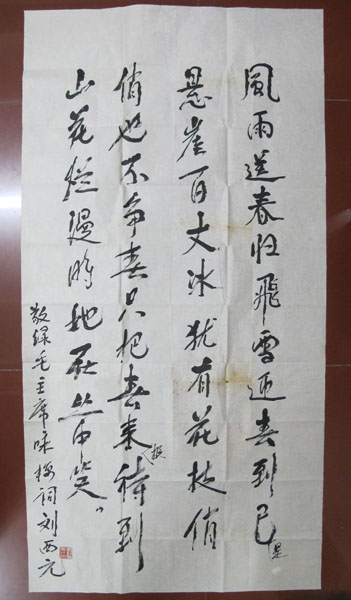 風雨送春归飛雪迎春到已是
悬崖百丈冰犹有花枝俏
俏也不争春只把春来报待到
山花烂漫时她在丛中笑。
敬録毛主席咏梅词刘西元